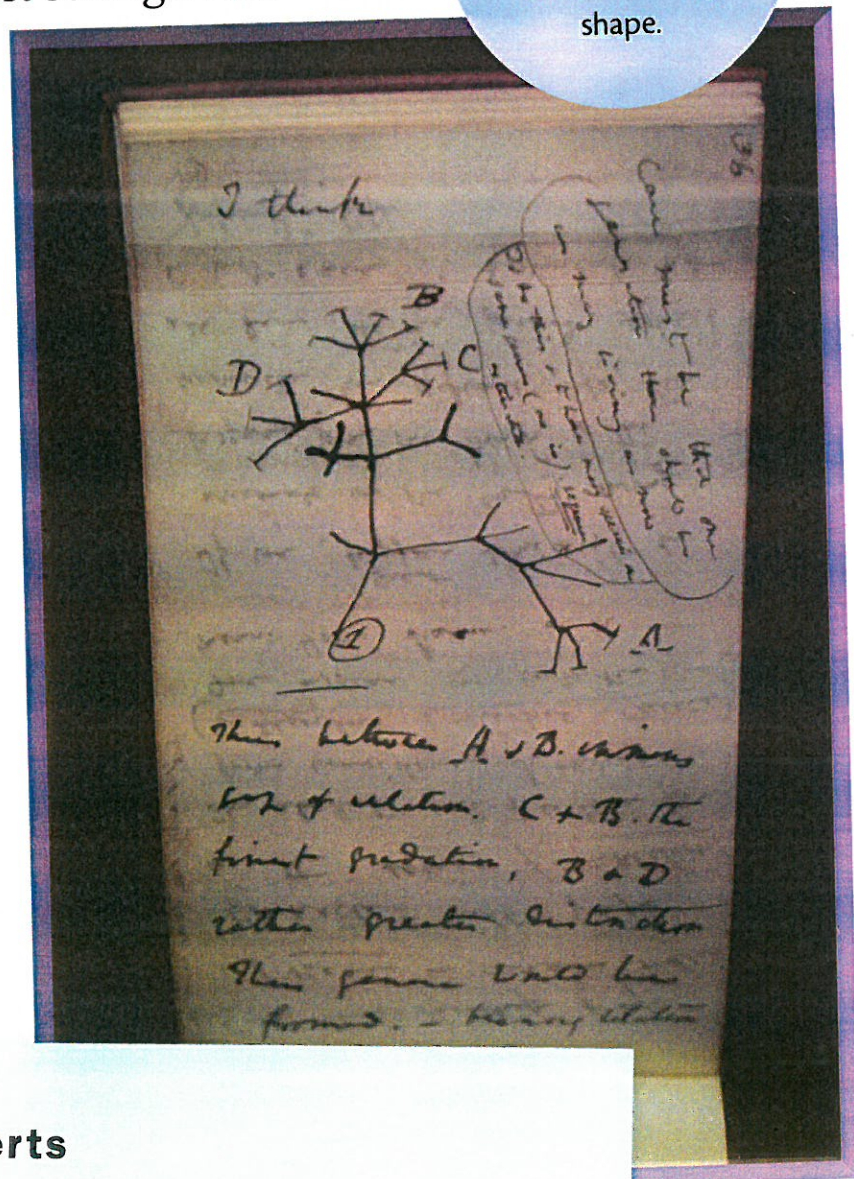 shape.
36
I think
Case must be that one
generation then should be
as many living as now
To do this & to have many species in
same genus (as is) requires
extinction
B
C
D
A
1
Thus between A & B. immens
gap of relation. C & B. the
finest gradation, B & D
rather greater distinction
Thus genera would be
formed. — bearing relation
erts